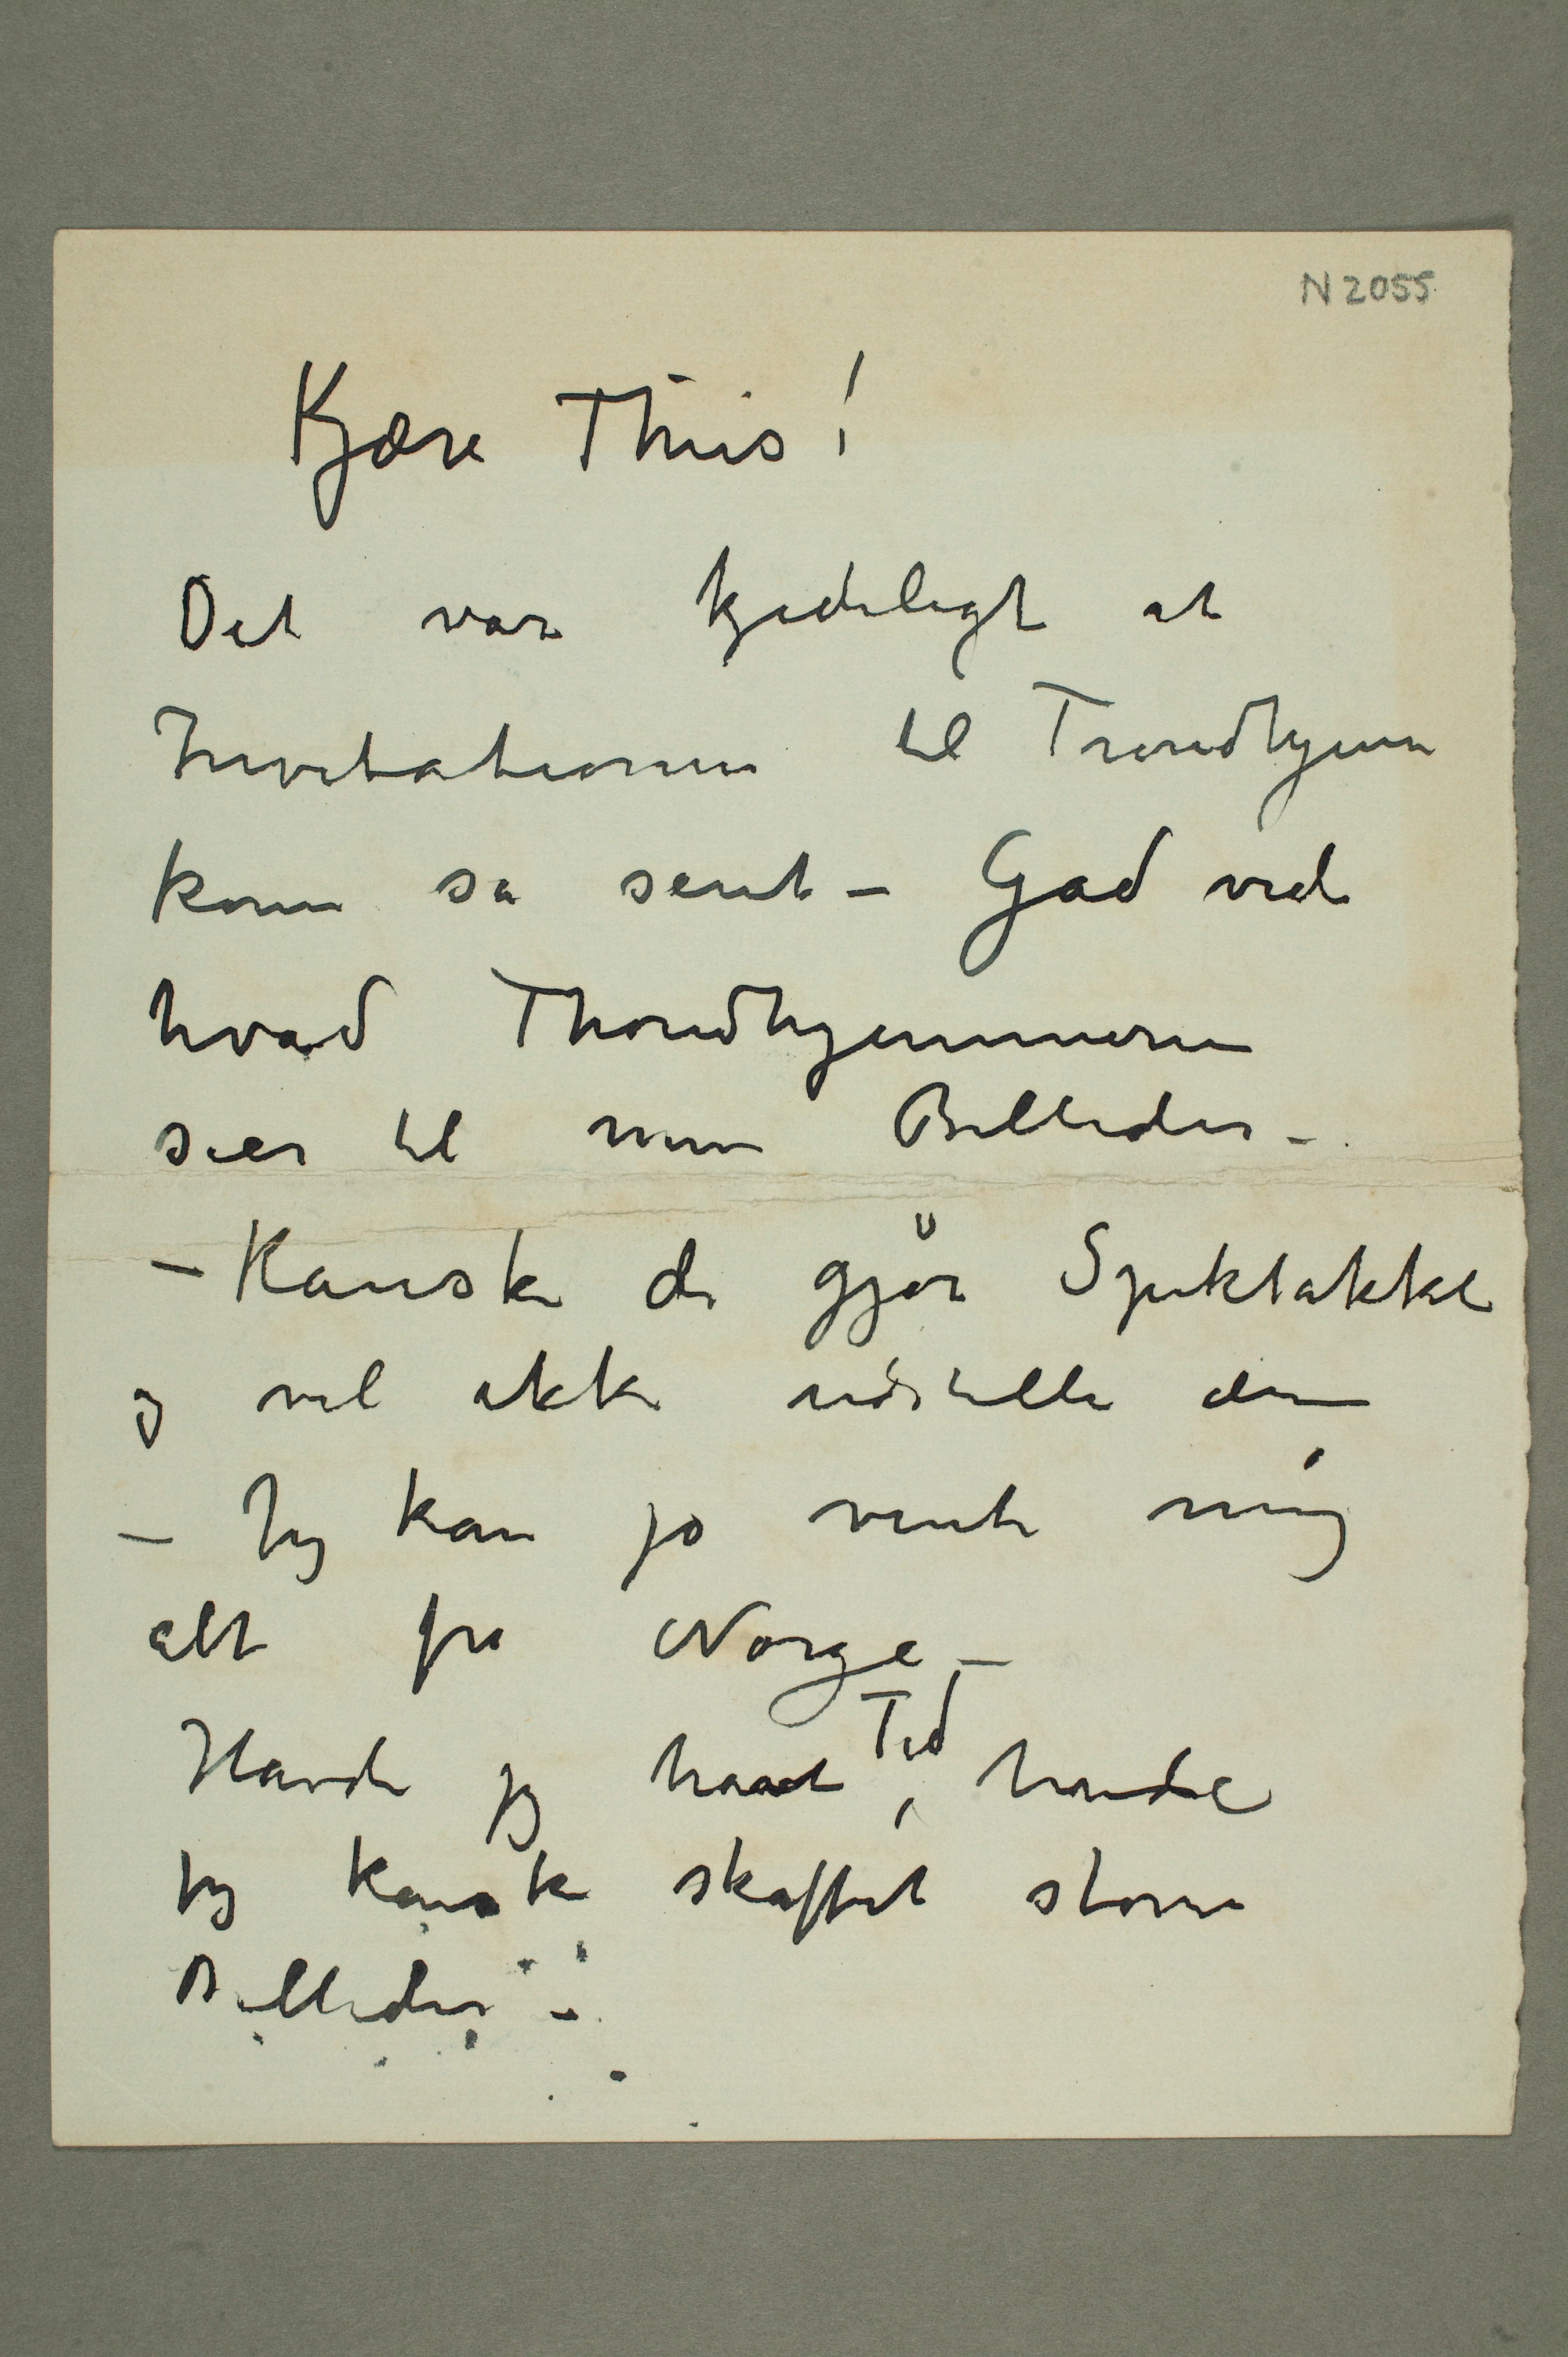 N 2055
Kjære Thiis!
Det var kjedeligt at
Invitationen til Trondhjem
kom så sent – Gad vide
hvad Throndhjemmerne
sier til mine Billeder –
– Kanske de gjør Spektakkel
og vil ikke udstille dem
– Jeg kan jo vente mig
alt fra Norge –
Havde jeg havt Tid, havde
jeg kanske skaffet større
Billeder –